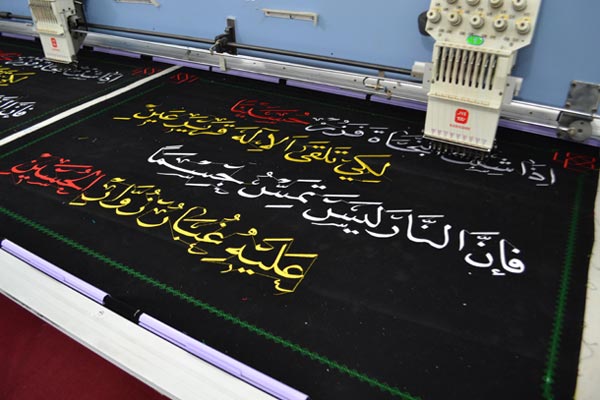 إِذَا شئت النَّجَاةَ فَزُرْ حُسَيْنًا
لِكَيْ تَلْقَى الإِلَهَ قَرِيرَ عَيْنٍ
فَإِنَّ النَّارَ لَيْسَ تَمَسُّ جِسْمًا
عَلَيْهِ غُبَارُ زُوَّارِ الحُسَيْنِ